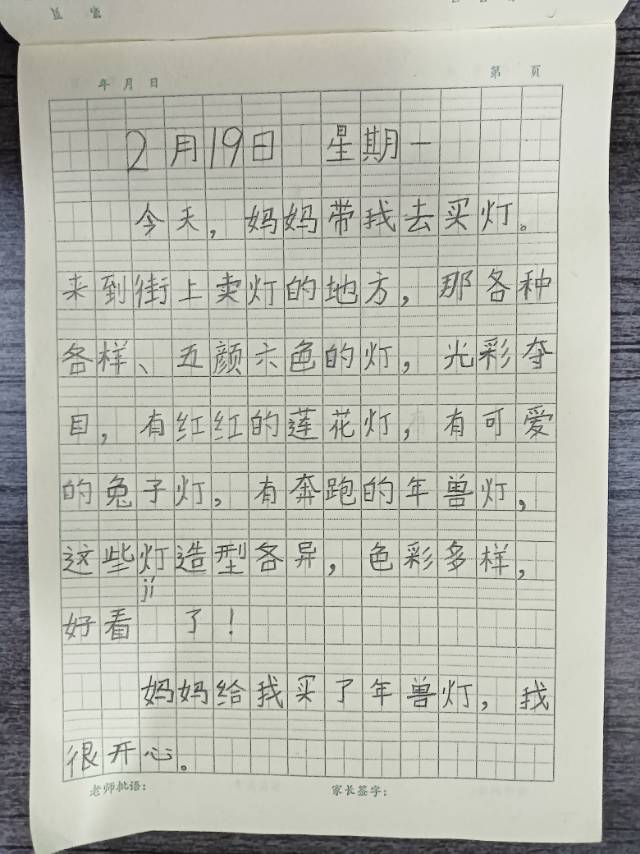 年 月 日 第 页
2月19日 星期一
今天，妈妈带我去买灯。
来到街上卖灯的地方，那各种
各样、五颜六色的灯，光彩夺
目，有红红的莲花灯，有可爱
的兔子灯，有奔跑的年兽灯，
这些灯造型各异，色彩多样，
jí
好看 了！
妈妈给我买了年兽灯，我
很开心。
老师批语： 家长签字：